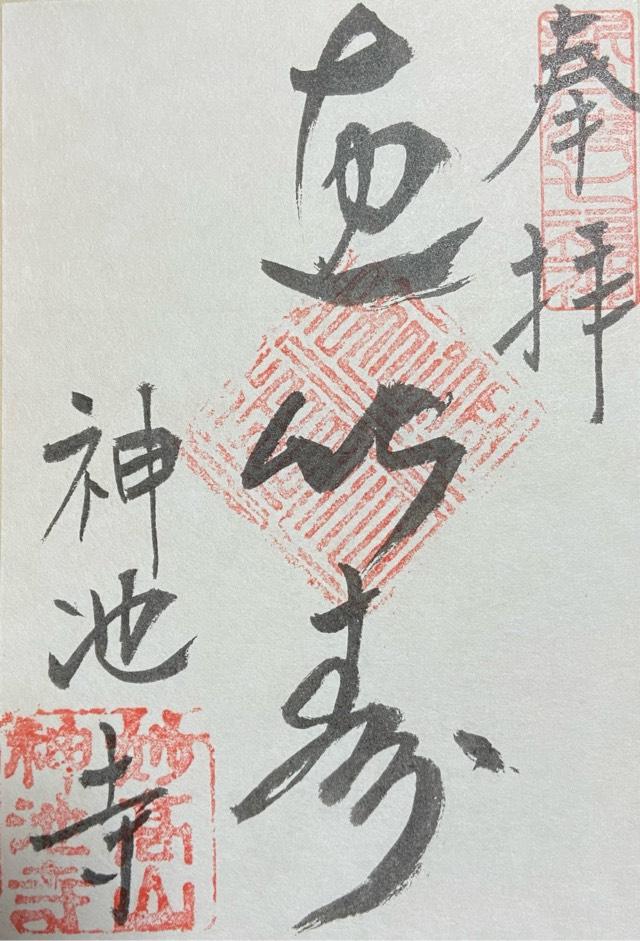 奉拝
恵比寿
神池寺
妙高山
神池寺